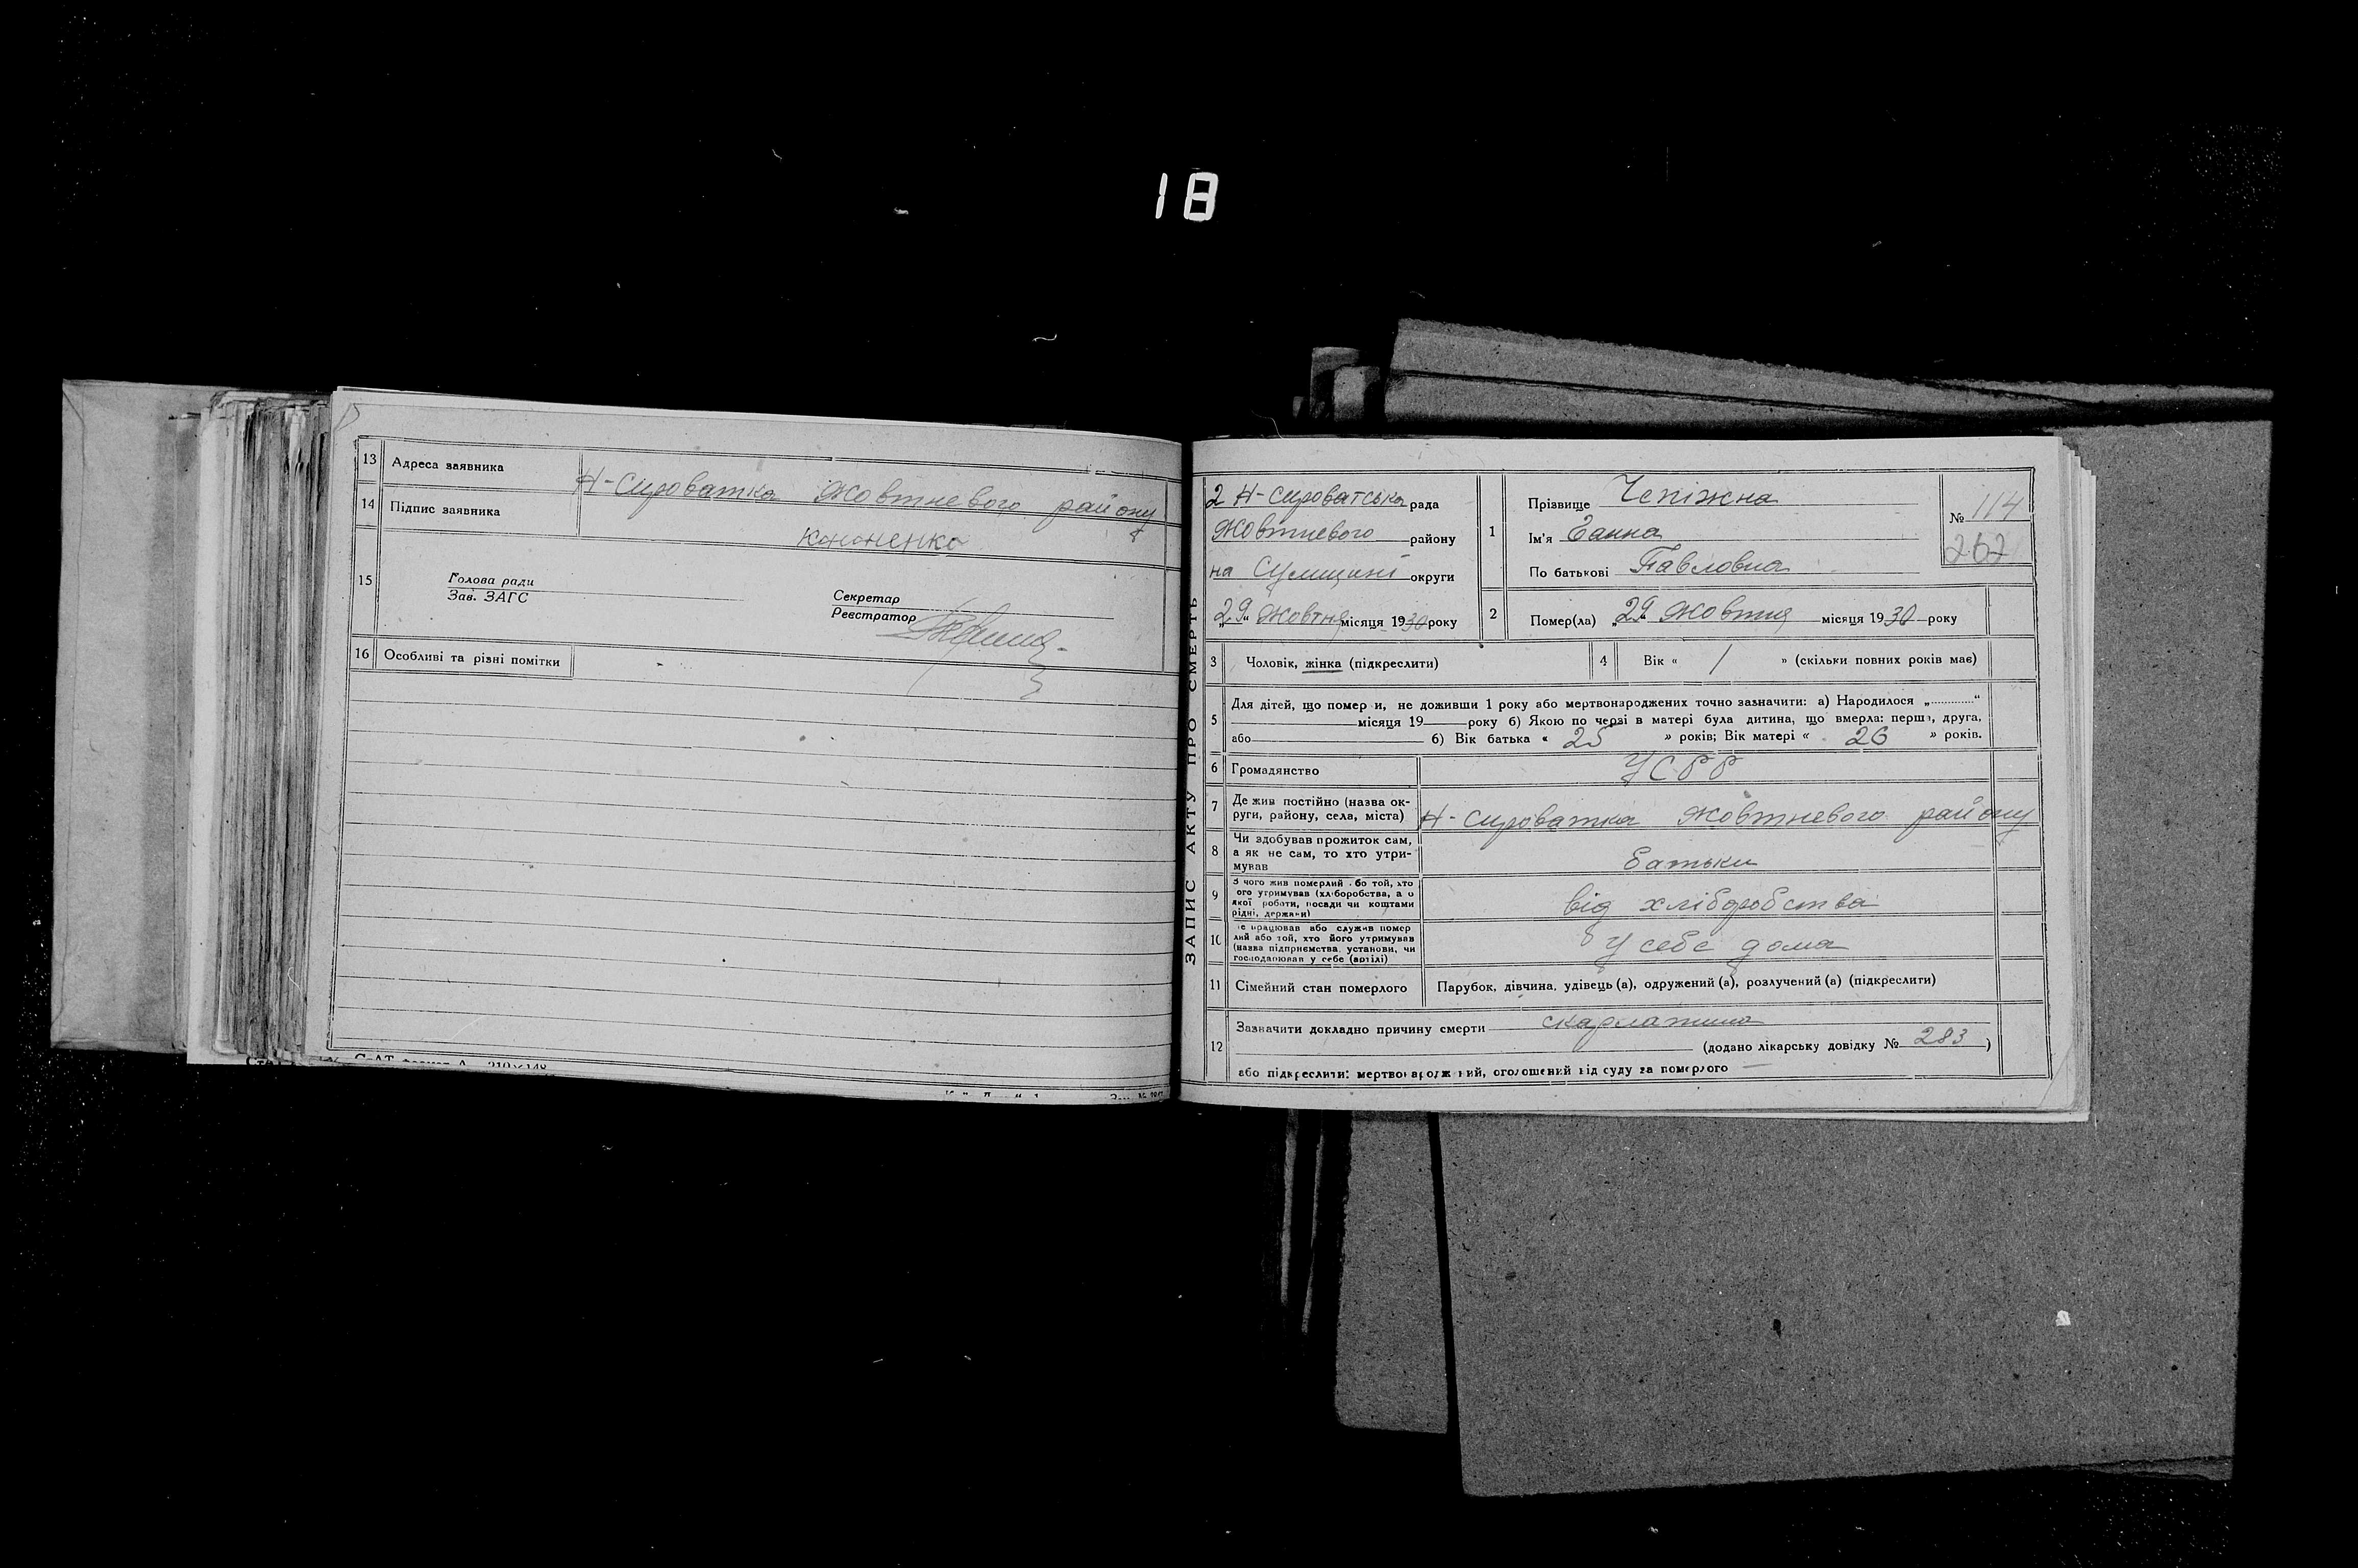 18
13 Адреса заявника Н-Сироватка Жовтневого району
14 Підпис заявника Кононенко
15 Голова ради
Зав. ЗАГС
Секретар
Реєстратор
16 Особливі та різні помітки
ЗАПИС АКТУ ПРО СМЕРТЬ
2 Н-Сироватська рада
Жовтневого району
на Сумщині округи
„29“ Жовтня місяця 1930 року
1 Прізвище Чепіжна
Ім'я Ганна
По батькові Павловна
№ 114
262
2 Помер(ла) „29“ Жовтня місяця 1930 року
3 Чоловік, жінка (підкреслити)
4 Вік « 1 » (скільки повних років має)
5 Для дітей, що померли, не доживши 1 року або мертвонароджених точно зазначити: а) Народилося „............“
місяця 19 року б) Якою по черзі в матері була дитина, що вмерла: перша, друга,
або б) Вік батька « 25 » років; Вік матері « 26 » років.
6 Громадянство УСРР
7 Де жив постійно (назва ок-
руги, району, села, міста) Н-Сироватка Жовтневого району
8 Чи здобував прожиток сам,
а як не сам, то хто утри-
мував батьки
9 З чого жив померлий або той, хто
його утримував (хліборобства, а о
якої роботи, посади чи коштами
рідні, держави) від хліборобства
10 Де працював або служив помер
лий або той, хто його утримував
(назва підприємства, установи, чи
господарював у себе (артілі) У себе дома
11 Сімейний стан померлого Парубок, дівчина, удівець (а), одружений (а), розлучений (а) (підкреслити)
12 Зазначити докладно причину смерти скарлатина
(додано лікарську довідку № 283 )
або підкреслити: мертвонароджений, оголошений від суду за померлого